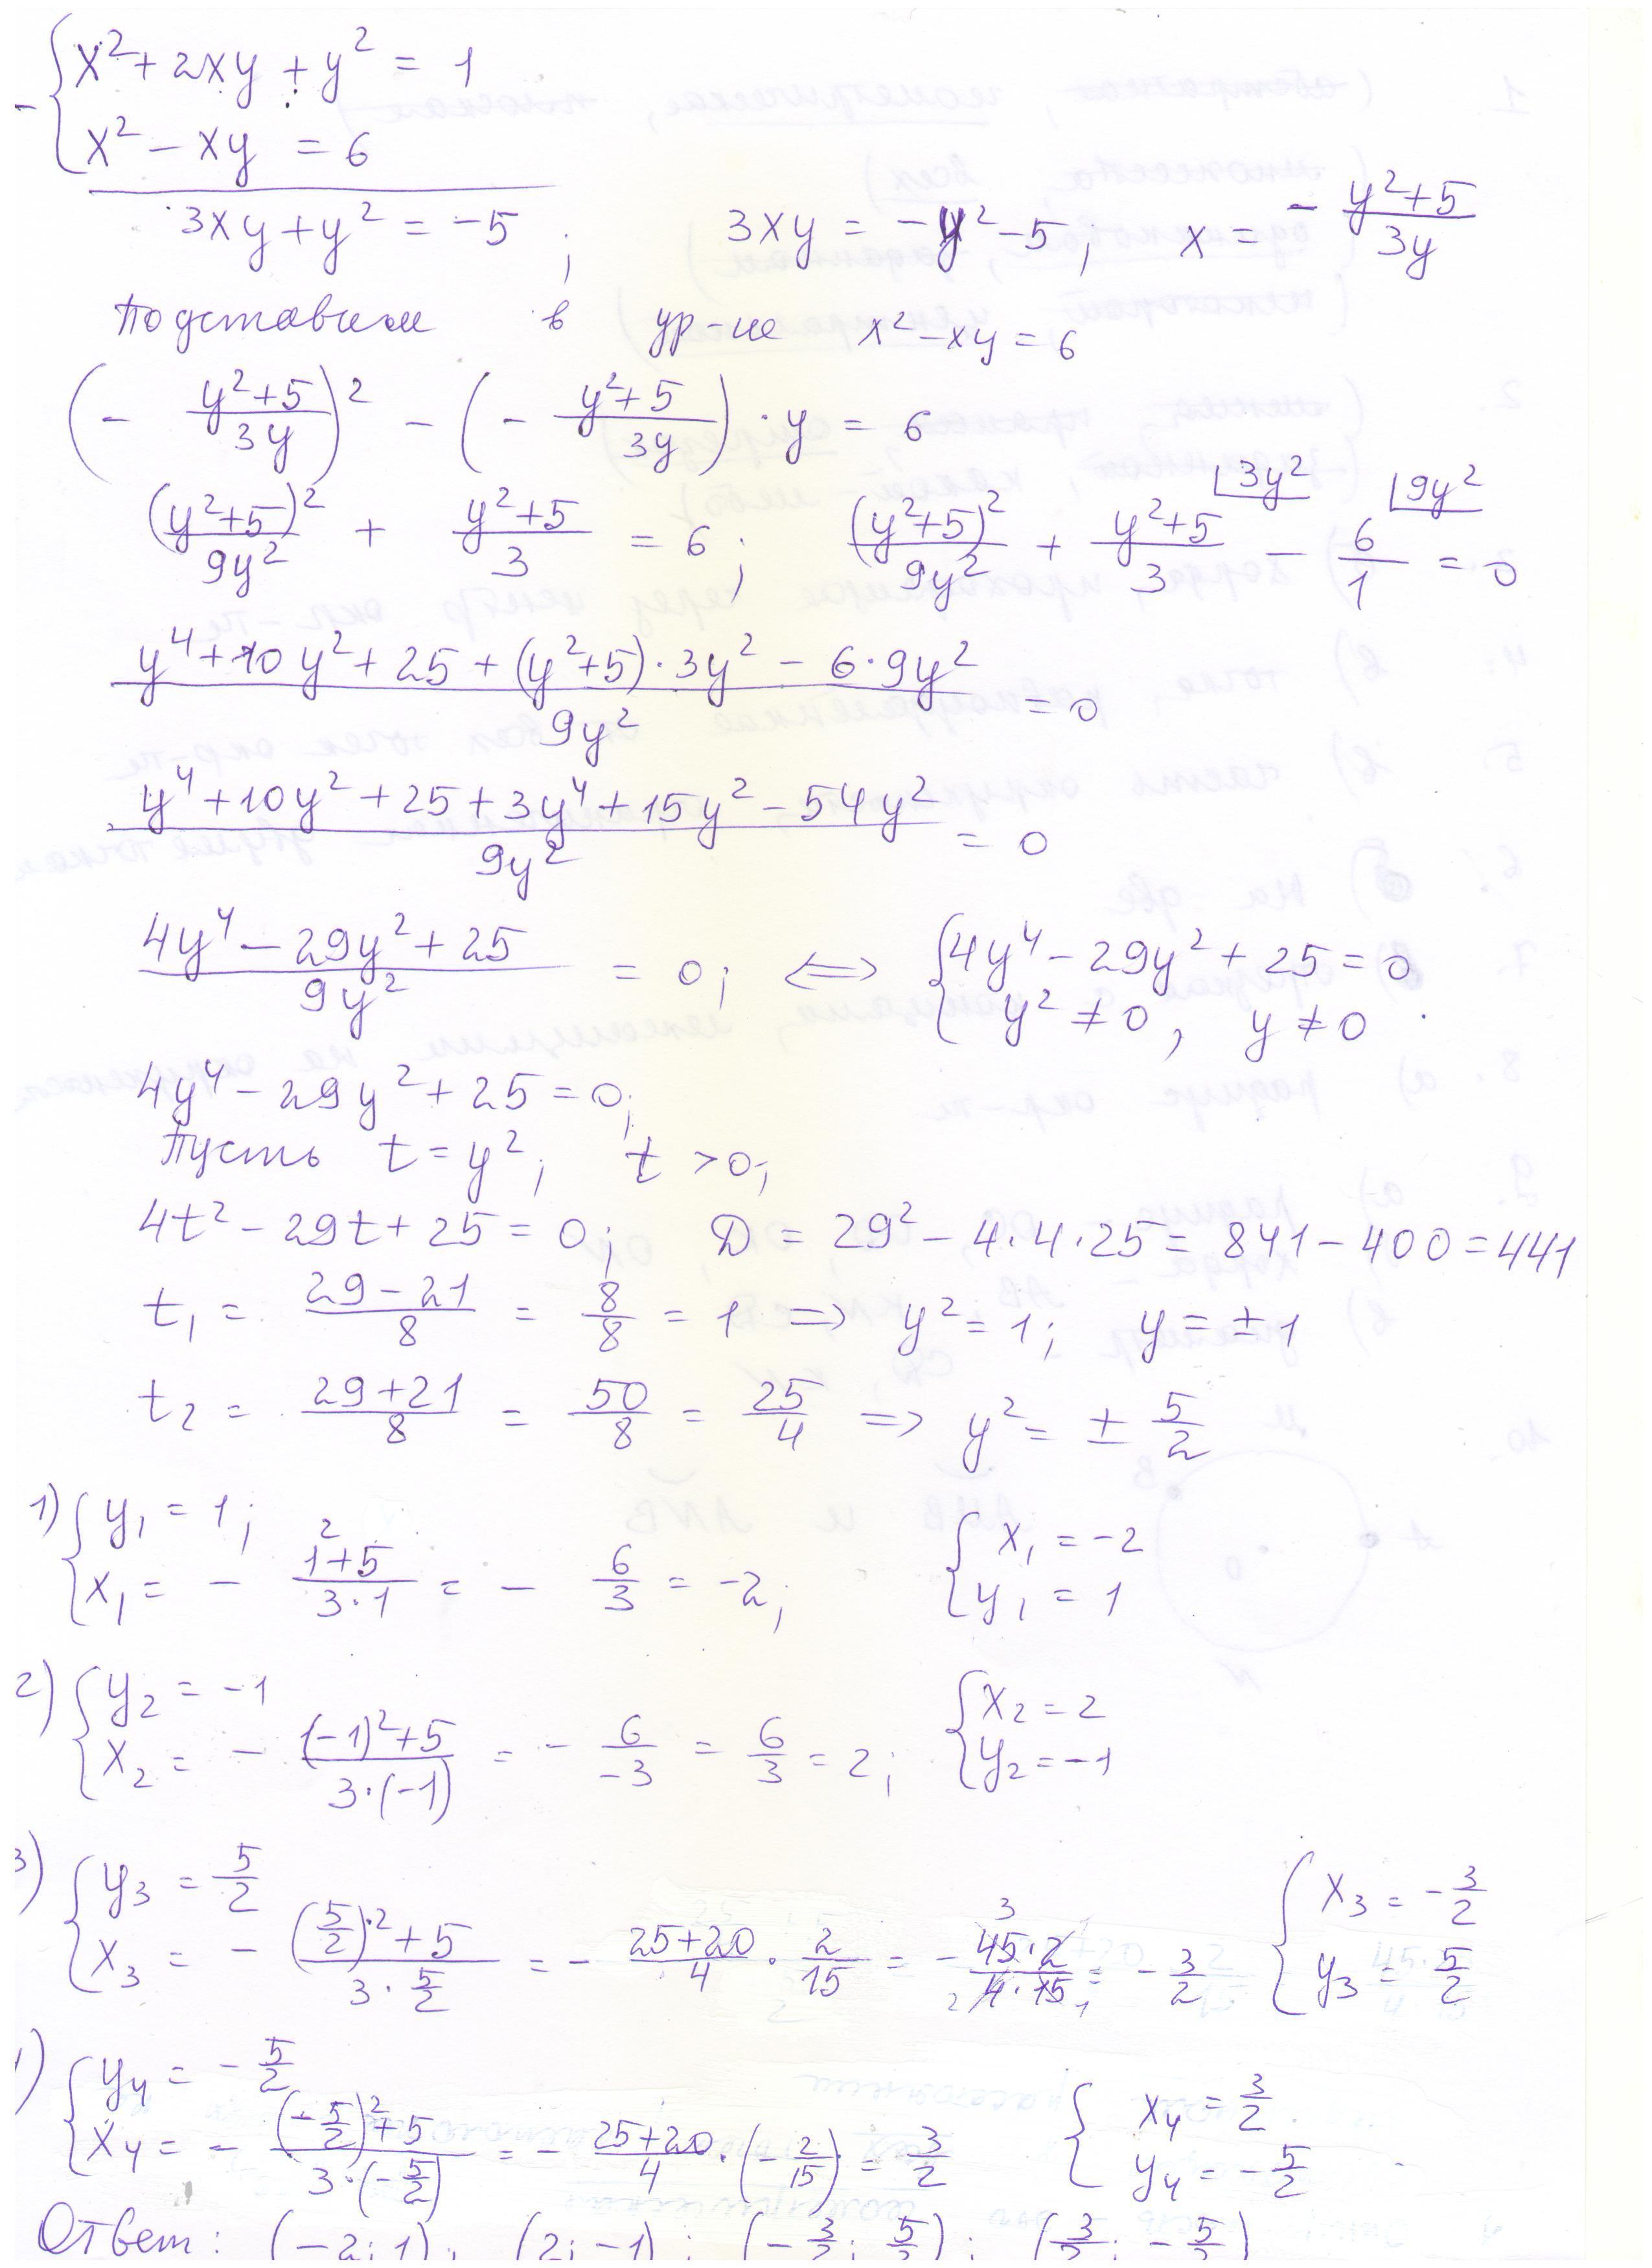 - { x² + 2xy + y² = 1
x² - xy = 6
3xy + y² = -5 ; 3xy = -y² - 5 ; x = - (y²+5)/(3y)
Подставим в ур-ие x² - xy = 6
(- (y²+5)/(3y))² - (- (y²+5)/(3y)) · y = 6
(y²+5)²/(9y²) + (y²+5)/3 = 6 ; (y²+5)²/(9y²) + (y²+5)/3 ⌊3y² - 6/1 ⌊9y² = 0
(y⁴ + 10y² + 25 + (y²+5)·3y² - 6·9y²)/(9y²) = 0
(y⁴ + 10y² + 25 + 3y⁴ + 15y² - 54y²)/(9y²) = 0
(4y⁴ - 29y² + 25)/(9y²) = 0; ⟺ { 4y⁴ - 29y² + 25 = 0
y² ≠ 0, y ≠ 0
4y⁴ - 29y² + 25 = 0;
Пусть t = y²; t > 0;
4t² - 29t + 25 = 0; D = 29² - 4·4·25 = 841 - 400 = 441
t₁ = (29-21)/8 = 8/8 = 1 ⟹ y² = 1; y = ±1
t₂ = (29+21)/8 = 50/8 = 25/4 ⟹ y² = ± 5/2
1) { y₁ = 1;
x₁ = - (1²+5)/(3·1) = - 6/3 = -2; { x₁ = -2
y₁ = 1
2) { y₂ = -1
x₂ = - ((-1)²+5)/(3·(-1)) = - 6/(-3) = 6/3 = 2; { x₂ = 2
y₂ = -1
3) { y₃ = 5/2
x₃ = - ((5/2)²+5)/(3·5/2) = - (25+20)/4 · 2/15 = - (45·2)/(4·15) = - 3/2 { x₃ = - 3/2
y₃ = 5/2
) { y₄ = - 5/2
x₄ = - ((-5/2)²+5)/(3·(-5/2)) = - (25+20)/4 · (- 2/15) = 3/2 { x₄ = 3/2
y₄ = - 5/2
Ответ: (-2; 1); (2; -1); (- 3/2; 5/2); (3/2; - 5/2)